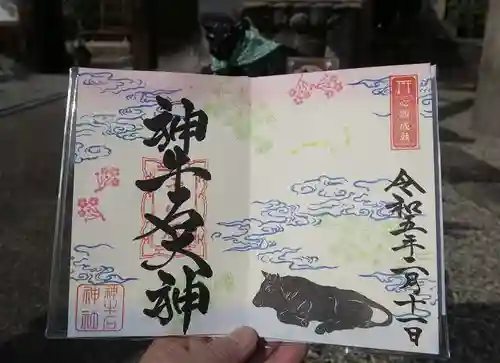 心願成就
令和五年二月十一日
神
神
神吉
神社